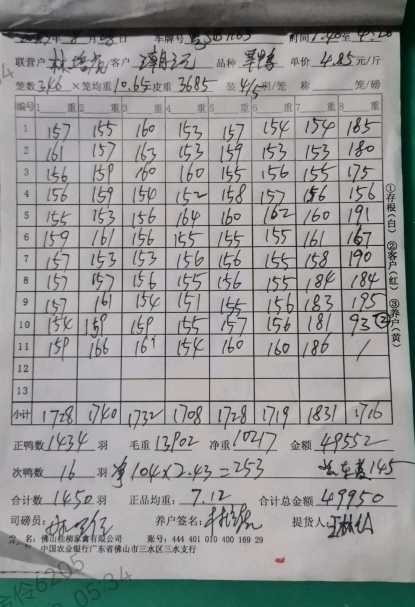 联营户 客户 品种 单价 4.85 元/斤
笼数 346 × 笼均重 10.65 皮重 3685 装 /笼 笼/磅
编号 1 重 2 重 3 重 4 重 5 重 6 重 7 重 8 重
1 157 155 160 153 157 154 154 185
2 161 157 163 153 159 153 153 180
3 156 159 160 160 155 156 155 175
4 156 159 154 152 158 157 156 156
5 155 153 156 164 160 162 160 191
6 159 161 156 155 155 155 161 167
7 157 153 153 156 156 155 158 190
8 157 157 156 155 156 155 184 184
9 157 161 154 151 155 156 183 195
10 154 159 159 155 157 156 181 93
11 159 166 161 154 160 160 186 /
12
13
小计 1728 1740 1732 1708 1728 1719 1831 1716
正鸭数 1434 羽 毛重 13902 净重 10217 金额 49552
次鸭数 16 羽 净 104×2.43=253 145
合计数 1450 羽 正品均重: 7.12 合计总金额 49950
司磅员: 养户签名: 提货人:
名: 佛山桂柳家禽有限公司 账号: 444 401 010 400 169 29
中国农业银行广东省佛山市三水区三水支行
①存根(白) ②客户(红) ③养户(黄)
05:34